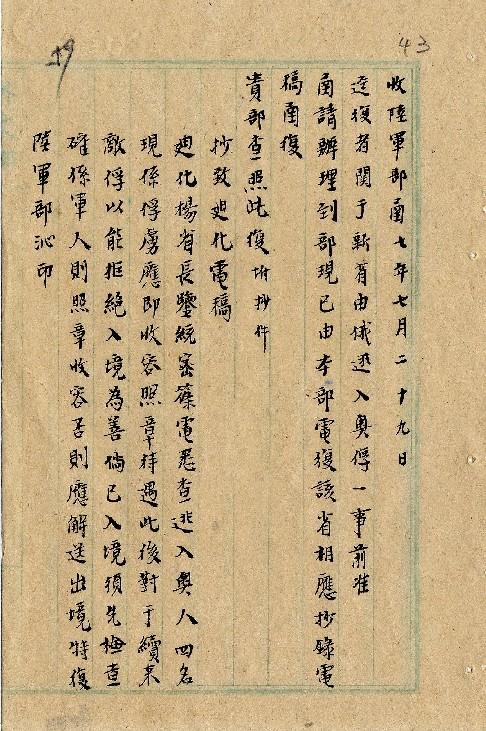 43
收陸軍部函七年七月二十九日
逕復者關于新省由俄逃入奧俘一事前准
函請辦理到部現已由本部電復該省相應抄錄電
稿函復
貴部查照此復 附抄件
抄致迪化電稿
迪化楊省長鑒統密篠電悉查逃入奧人四名
現係俘虜應即收容照章待遇此後對于續來
敵俘以能拒絕入境為善倘已入境須先檢查
確係軍人則照章收容否則應解送出境特復
陸軍部沁印